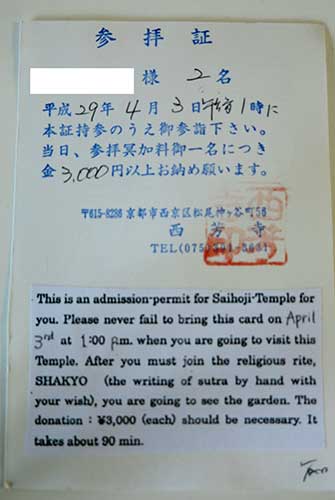 参拝証
様 2名
平成29年4月3日午后1時に
本証持参のうえ御参詣下さい。
当日、参拝冥加料御一名につき
金3,000円以上お納め願います。
〒615-8286 京都市西京区松尾神ヶ谷町56
西芳寺
TEL(075)391-3631
This is an admission-permit for Saihoji-Temple for
you. Please never fail to bring this card on April
3rd at 1:00 p.m. when you are going to visit this
Temple. After you must join the religious rite,
SHAKYO (the writing of sutra by hand with
your wish), you are going to see the garden. The
donation : ¥3,000 (each) should be necessary. It
takes about 90 min.